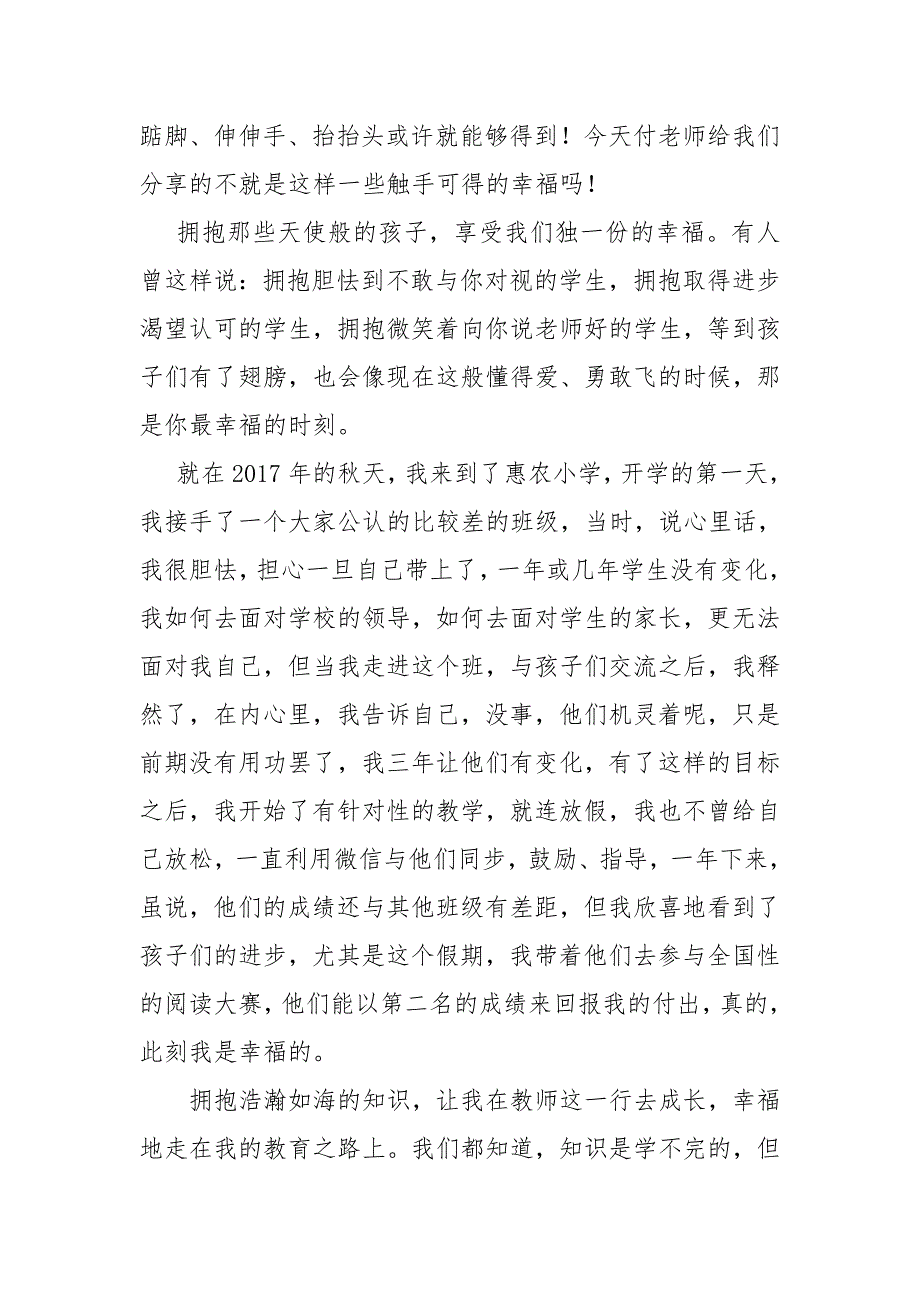 踮脚、伸伸手、抬抬头或许就能够得到！今天付老师给我们
分享的不就是这样一些触手可得的幸福吗！
拥抱那些天使般的孩子，享受我们独一份的幸福。有人
曾这样说：拥抱胆怯到不敢与你对视的学生，拥抱取得进步
渴望认可的学生，拥抱微笑着向你说老师好的学生，等到孩
子们有了翅膀，也会像现在这般懂得爱、勇敢飞的时候，那
是你最幸福的时刻。
就在 2017 年的秋天，我来到了惠农小学，开学的第一天，
我接手了一个大家公认的比较差的班级，当时，说心里话，
我很胆怯，担心一旦自己带上了，一年或几年学生没有变化，
我如何去面对学校的领导，如何去面对学生的家长，更无法
面对我自己，但当我走进这个班，与孩子们交流之后，我释
然了，在内心里，我告诉自己，没事，他们机灵着呢，只是
前期没有用功罢了，我三年让他们有变化，有了这样的目标
之后，我开始了有针对性的教学，就连放假，我也不曾给自
己放松，一直利用微信与他们同步，鼓励、指导，一年下来，
虽说，他们的成绩还与其他班级有差距，但我欣喜地看到了
孩子们的进步，尤其是这个假期，我带着他们去参与全国性
的阅读大赛，他们能以第二名的成绩来回报我的付出，真的，
此刻我是幸福的。
拥抱浩瀚如海的知识，让我在教师这一行去成长，幸福
地走在我的教育之路上。我们都知道，知识是学不完的，但